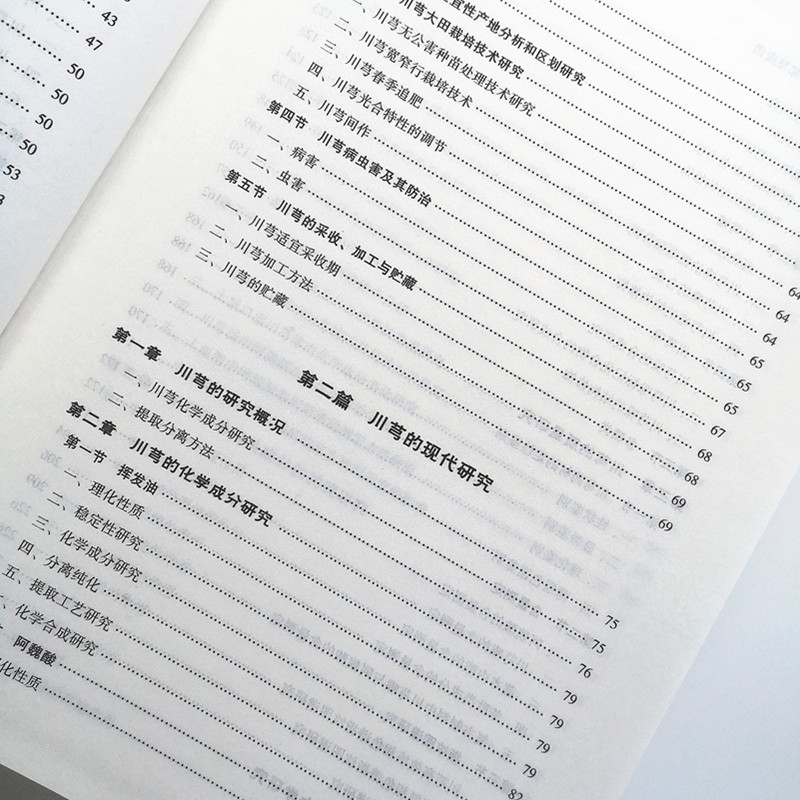 43
47
50
50
50
50
53
宜性产地分析和区划研究
川芎大田栽培技术研究
一、川芎无公害种苗处理技术研究
二、川芎宽窄行栽培技术
三、川芎春季追肥
四、川芎光合特性的调节
五、川芎间作
第四节 川芎病虫害及其防治
一、病害
二、虫害 64
第五节 川芎的采收、加工与贮藏 64
一、川芎适宜采收期
二、川芎加工方法
三、川芎的贮藏
64
65
65
65
67
68
68
69
69
第二篇 川芎的现代研究
第一章 川芎的研究概况
一、川芎化学成分研究
二、提取分离方法
第二章 川芎的化学成分研究
第一节 挥发油
一、理化性质
二、稳定性研究
三、化学成分研究
四、分离纯化
五、提取工艺研究
、化学合成研究
阿魏酸
化性质
75
75
76
79
79
79
79
82